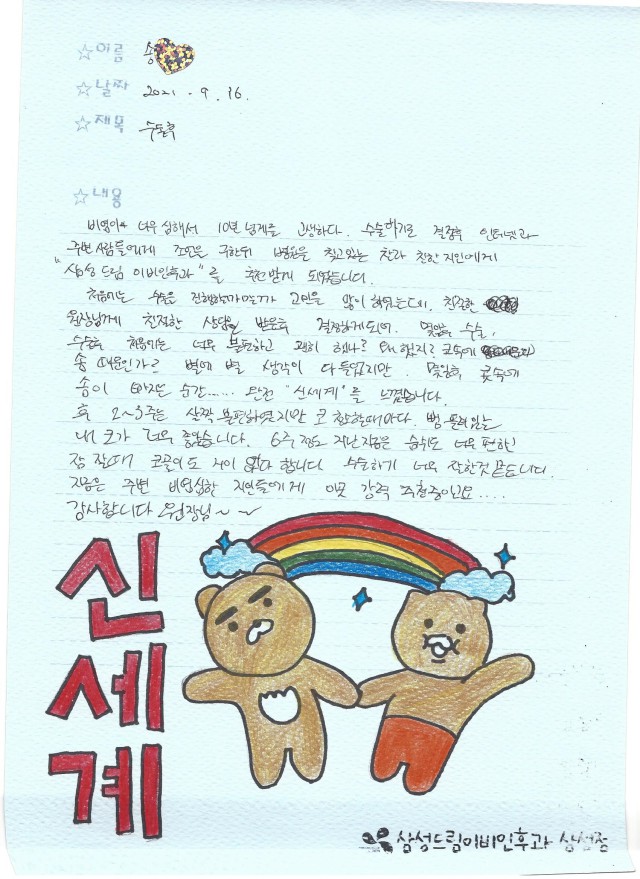 ☆이름 송
☆날짜 2021. 9. 16.
☆제목 수술후
☆내용
비염이 너무 심해서 10년 넘게를 고생하다. 수술하기로 결정후 인터넷과
주변사람들에게 조언을 구한뒤 병원을 찾고있는 찰라 친한 지인에게
"삼성드림이비인후과"를 추천받게 되었습니다.
처음에는 수술을 진행할까말까 고민을 많이 하였는데. 친절한
원장님께 친절한 상담을 받은후 결정하게되어. 몇일후 수술.
수술후 처음에는 너무 불편하고 괜히 했나? 왜했지? 코속에
솜 때문인가 별에 별 생각이 다 들었지만. 몇일후 콧속에
솜이 빠지는 순간...... 완전 "신세계"를 느꼈습니다.
후 2~3주는 살짝 불편하였지만 코 청소할때마다. 뻥 뚫려있는
내 코가 너무 좋았습니다. 6주정도 지난지금은 숨쉬도 너무 편하고
잠 잘때 코골이도 거이 없다 합니다 수술하기 너무 잘한것 같습니다.
지금은 주변 비염심한 지인들에게 이곳 강력 추천중이고요....
감사합니다 원장님~~
신세계
삼성드림이비인후과 삼성점